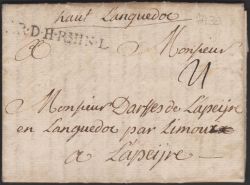 haut Languedoc
R-D-H-RHIN-L
A Monsieur
Monsieur Darsses de Lapeijre
en Languedoc par Limoux
a Lapeijre